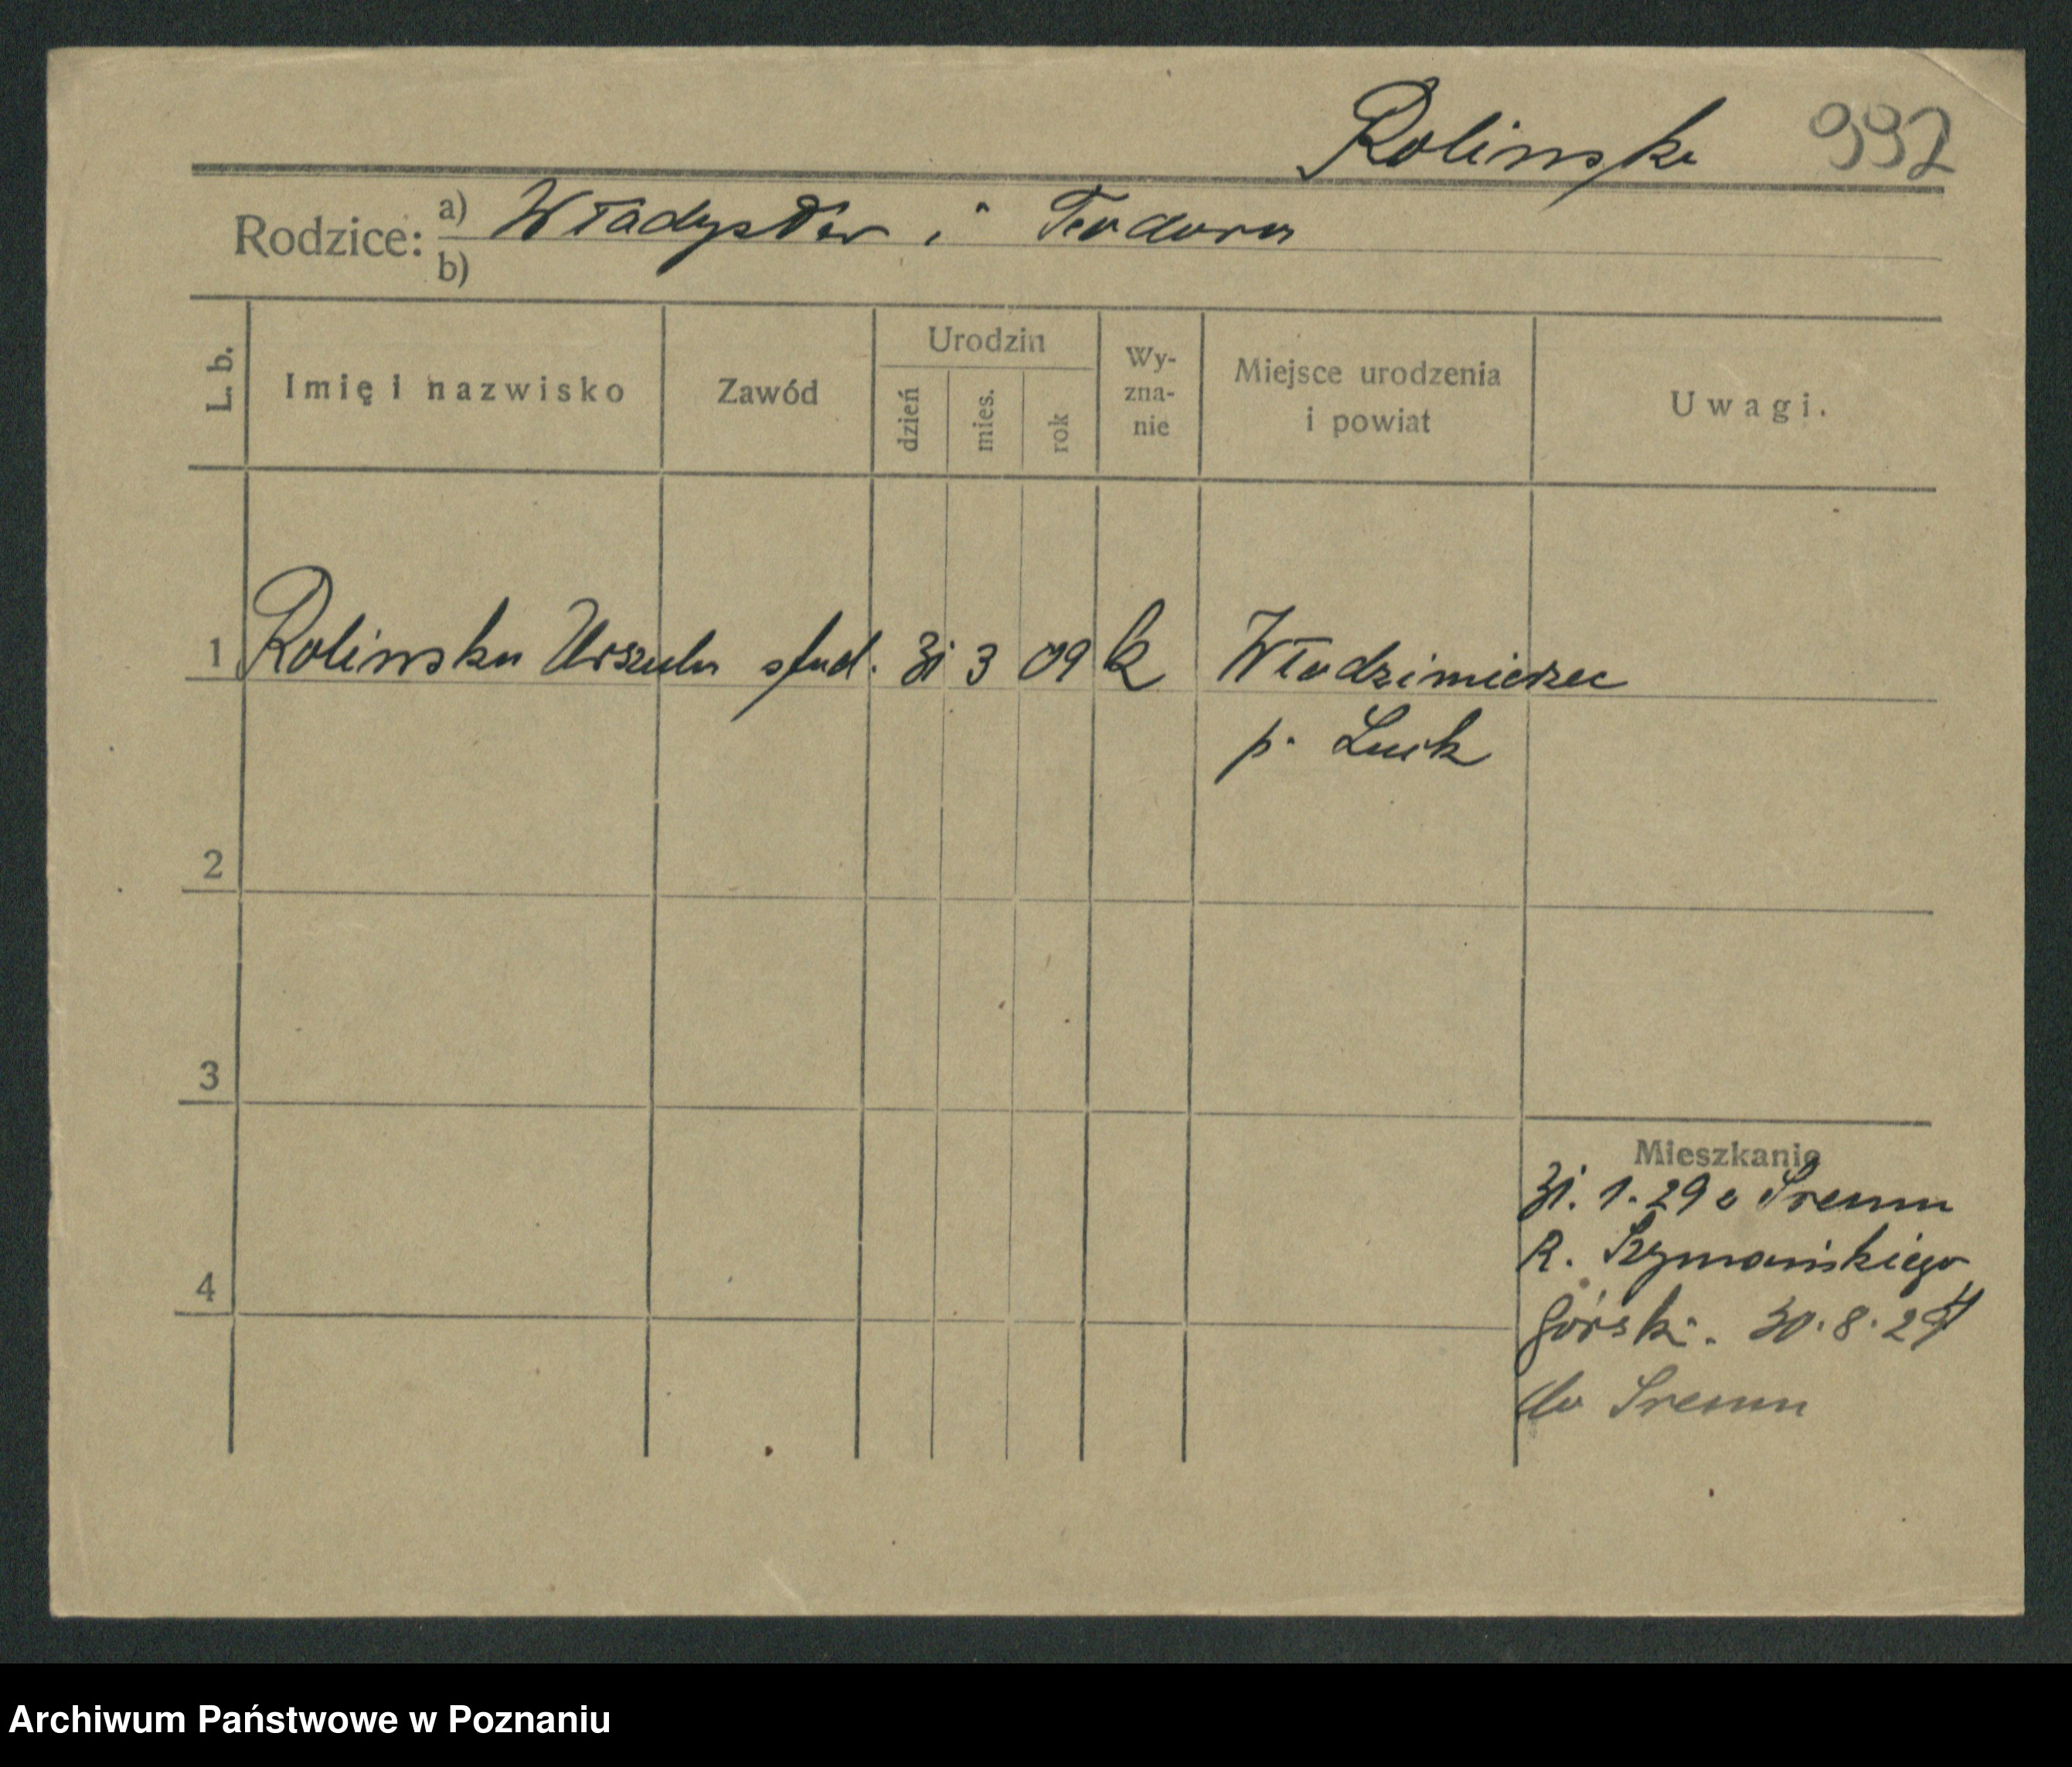 Rolinska 992
Rodzice: a) Władysław i Teodora
b)
L. b. Imię i nazwisko Zawód Urodzin dzień mies. rok Wy-zna-nie Miejsce urodzenia i powiat Uwagi.
1 Rolinska Urszula stud. 31 3 09 k Włodzimierzec
p. Łuck
2
3
Mieszkanie
31. 1. 29 z Sremu
R. Szymańskiego
4
Górski. 30. 8. 29
do Sremu
Archiwum Państwowe w Poznaniu